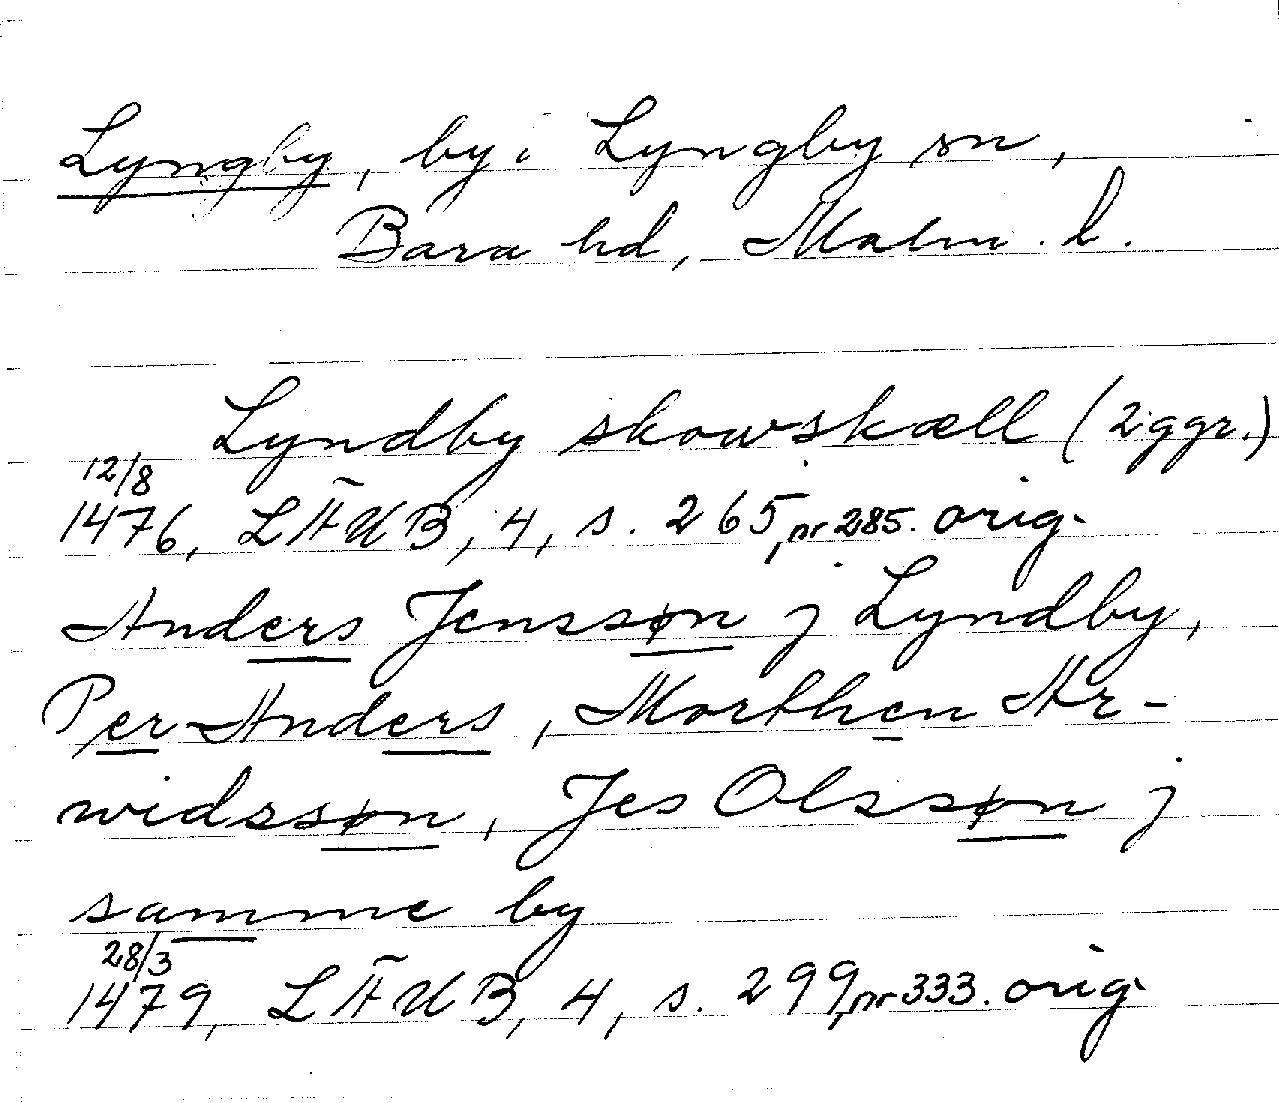 Lyngby, by i Lyngby sn,
Bara hd, Malm. l.
Lyndby skowskæll (2 ggr.)
12/8
1476, LÄUB, 4, s. 265, nr 285. orig.
Anders Jenssøn j Lyndby,
Per Anders, Morthen Ar-
widssøn, Jes Olssøn j
samme by
28/3
1479, LÄUB, 4, s. 299, nr 333. orig.